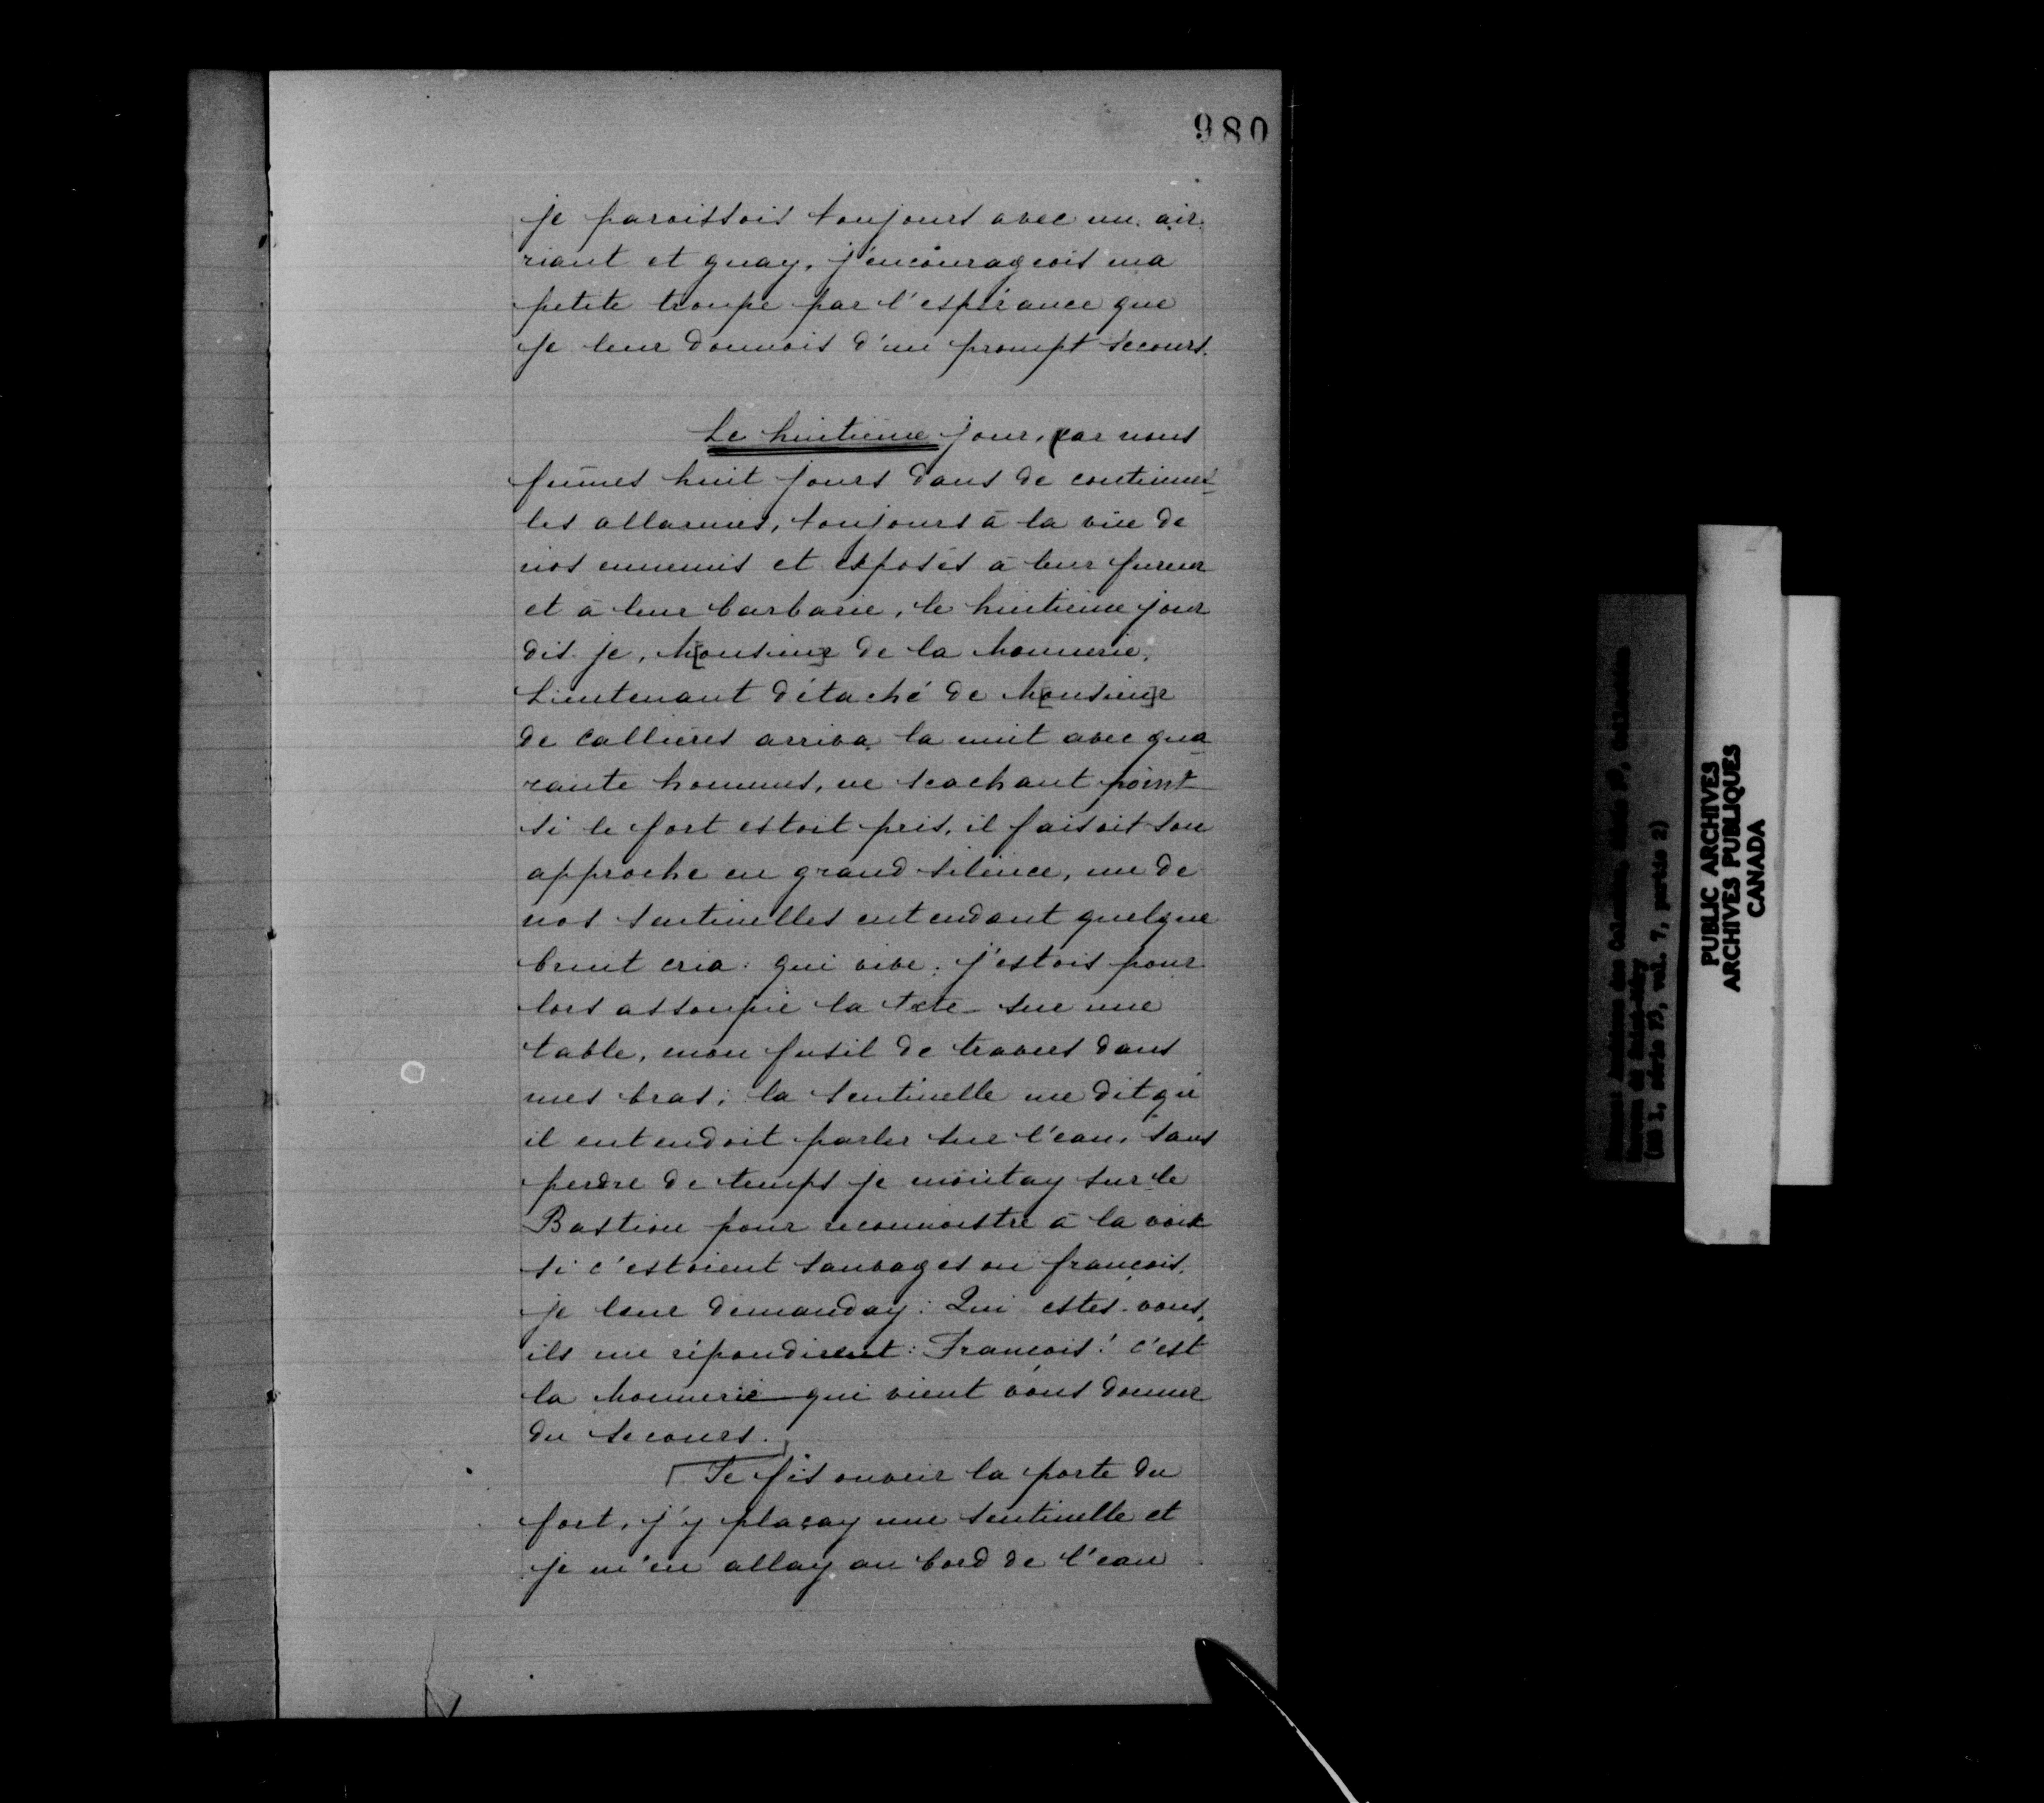 980
je paroissois toujours avec un air
riant et guay, j'encourageois ma
petite troupe par l'espérance que
je leur donnois d'un prompt secours.
Le huitieme jour, (car nous
fumes huit jours dans de continuel-
les allarmes, toujours à la vüe de
nos ennemis et exposés à leur fureur
et à leur barbarie, le huitieme jour
dis je, M[onsieur] de la Monnerie,
Lieutenant détaché de M[onsieur]
de Callieres arriva la nuit avec qua
rante hommes, ne scachant point
si le fort estoit pris, il faisoit son
approche en grand silence, une de
nos sentinelles entendant quelque
bruit cria: qui vive. j'estois pour
lors assoupie la tete sur une
table, mon fusil de travers dans
mes bras; la sentinelle me dit qu'
il entendoit parler sur l'eau, sans
perdre de temps je montay sur le
Bastion pour reconnoistre à la voix
si c'estoient sauvages ou françois.
je leur demanday: Qui estes-vous,
ils me répondirent: François! c'est
la Monnerie qui vient vous donner
du secours.
Je fis ouvrir la porte du
fort, j'y plaçay une sentinelle et
je m'en allay au bord de l'eau
PUBLIC ARCHIVES
ARCHIVES PUBLIQUES
CANADA
(MG 1, série F3, vol. 7, partie 2)